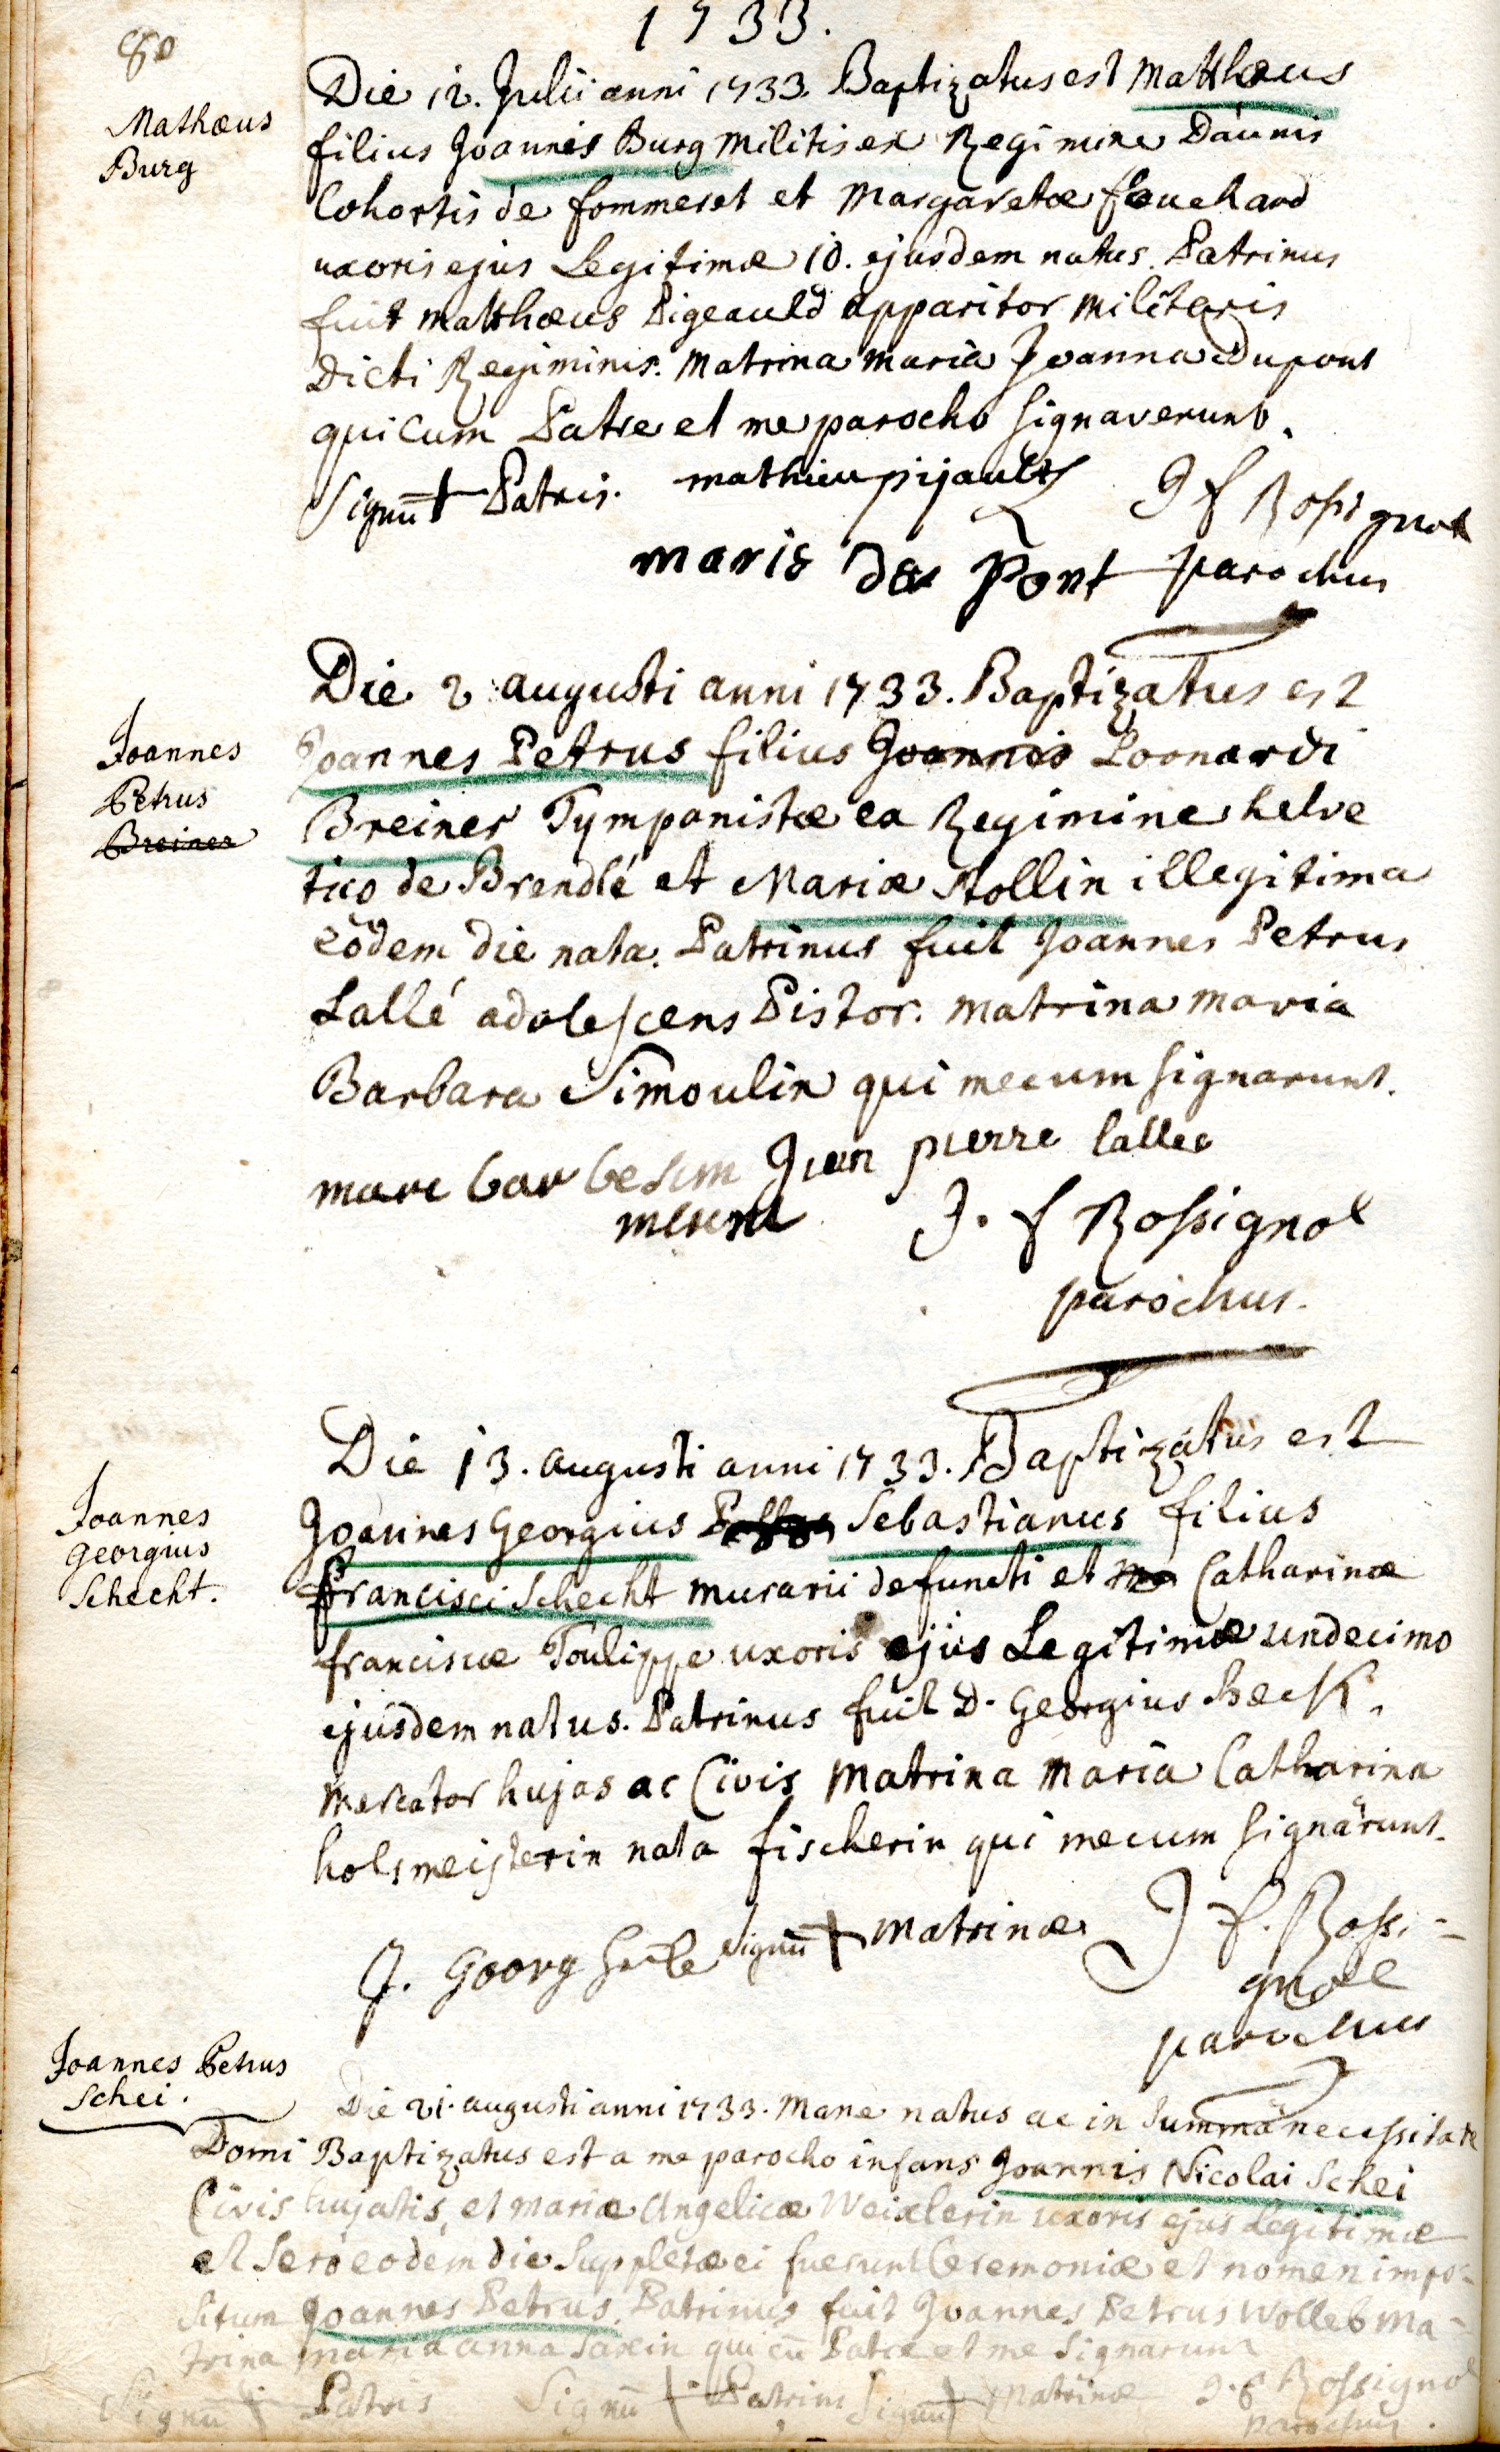 1733.
80
Mathæus
Burg
Die 12. Julii anni 1733. Baptizatus est Matthæus
filius Joannis Burg militis ex Regimine Daunis
Cohortis de sommeret et Margaretæ
uxoris ejus Legitimæ 10. ejusdem natus. Patrinus
fuit Matthæus Pigeauld apparitor militaris
Dicti Regiminis. Matrina maria Joanna Dupont
qui cum Patre et me parocho signaverunt.
Signū + Patris. mathieu pijault J f Rossignol
marie du Pont parochus
Joannes
Petrus
Breiner
Die 2 augusti anni 1733. Baptizatus est
Joannes Petrus filius Joannis Leonardi
Breiner Tympanistæ ex Regimine helve
tico de Brendlé et Mariæ Stollin illegitima
eodem die nata. Patrinus fuit Joannes Petrus
Lallé adolescens Pistor. Matrina maria
Barbara Simoulin qui mecum signarunt.
mare bar Jean pierre lallee
J. f Rossignol
parochus.
Joannes
Georgius
Schecht.
Die 13. augusti anni 1733. Baptizatus est
Joannes Georgius Sebastianus filius
Francisci Schecht murarii defuncti et Catharinæ
franciscæ Toulippe uxoris ejus Legitimæ undecimo
ejusdem natus. Patrinus fuit D. Georgius Heck.
mercator hujas ac Civis Matrina Maria Catharina
holsmeisterin nata fischerin qui mecum signarunt.
J. Georg Signū + Matrinæ J f. Rossi-
gnol
parochus
Joannes Petrus
Schei.
Die 21. augusti anni 1733. Mane natus ac in summa necessitate
Domi Baptizatus est a me parocho infans Joannis Nicolai Schei
Civis hujatis, et Mariæ Angelicæ Weixlerin uxoris ejus Legitimæ
et sero eodem die Suppletæ ei fuerunt Ceremoniæ et nomen impo-
situm Joannes Petrus. Patrinus fuit Joannes Petrus Wolleb Ma-
trina maria anna Saxin qui cū Patre et me Signarunt
Signū + Patris Signū + Patrini Signū + Matrinæ J. f Rossignol
parochus.